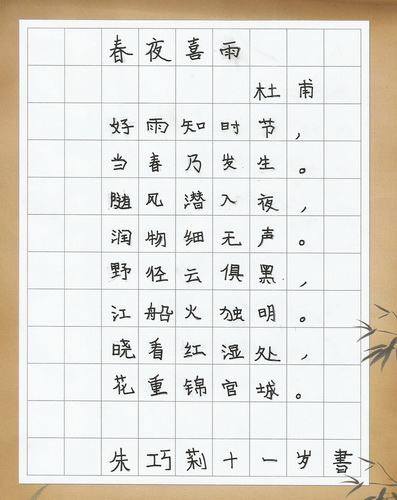 春夜喜雨
杜甫
好雨知时节，
当春乃发生。
随风潜入夜，
润物细无声。
野径云俱黑，
江船火独明。
晓看红湿处，
花重锦官城。
朱巧莉十一岁書